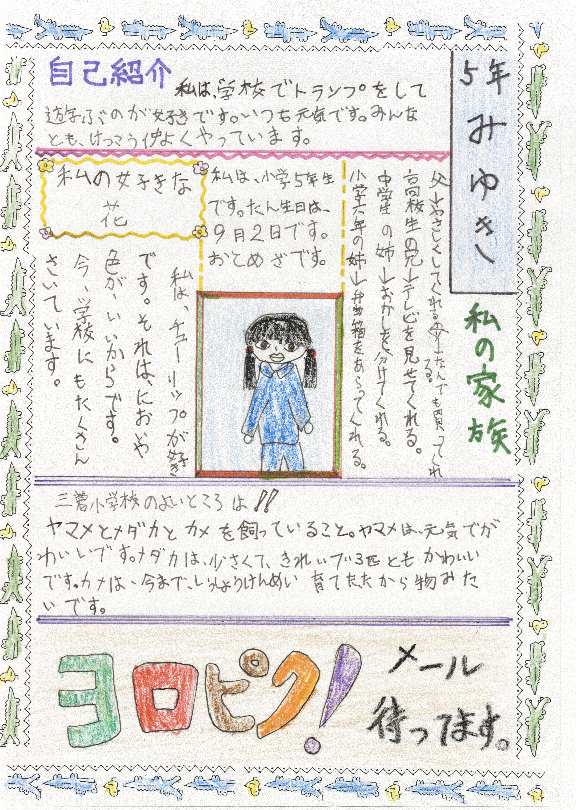 自己紹介
私は、学校でトランプをして
遊ぶのが好きです。いつも元気です。みんな
とも、けっこう仲よくやっています。
5年
みゆき
私の家族
父→やさしくしてくれる
高校生の兄→テレビを見せてくれる。
中学生の姉→おかしを分けてくれる。
小学六年の姉→弁当箱をあらってくれる。
私は、小学5年生
です。たん生日は、
9月2日です。
おとめざです。
私の好きな
花
私は、チューリップが好き
です。それは、においや
色が、いいからです。
今、学校にもたくさん
さいています。
小学校のよいところは!!
ヤマメとメダカとカメを飼っていること。ヤマメは、元気でか
わいいです。メダカは、小さくて、きれいで3匹ともかわいい
です。カメは、今まで、いっしょうけんめい育てたたから物みた
いです。
ヨロピク!
メール
待ってます。